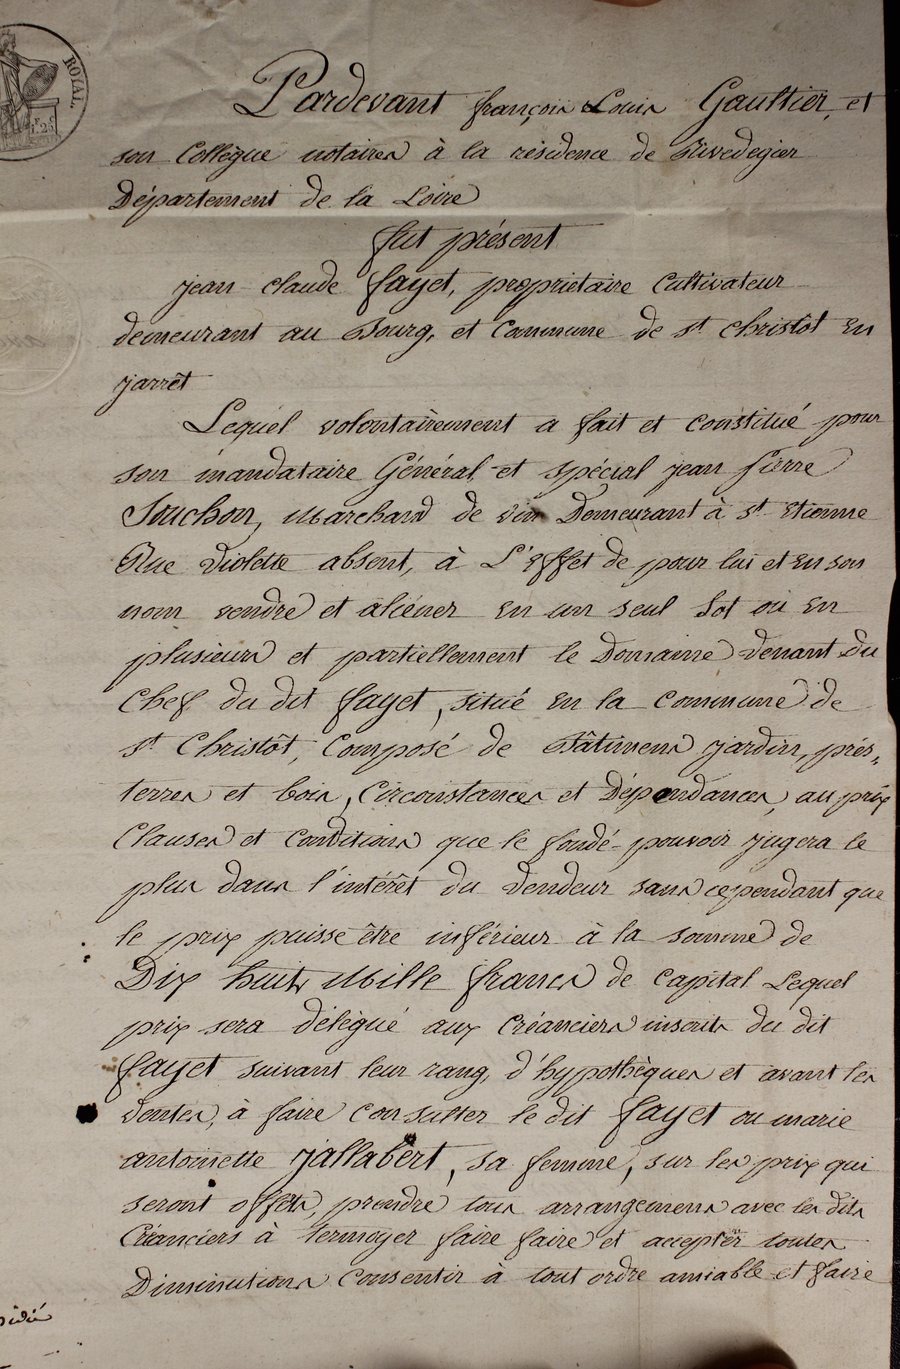 ROYAL.
1.F 25C
Pardevant françois Louis Gaultier, et
son Collègue notaires à la résidence de Rivedegier
Département de la Loire
fut présent
jean claude fayet, propriétaire Cultivateur
demeurant au Bourg, et Commune de st christôt En
jarrêt
Lequel volontairement a fait et constitué pour
son mandataire Général et spécial jean Pierre
Souchon, Marchand de vin Demeurant à st Etienne
Rue Violette absent, à L'Effet de pour lui et En son
nom vendre et aliéner En un seul Lot ou En
plusieurs et partiellement le Domaine Venant du
Chef du dit fayet, situé En la Commune de
st Christôt, Composé de Bâtimens jardin, prés,
terres et bois, Circonstances et Dépendances, au prix
Clauses et Conditions que le fondé-pouvoir jugera le
plus dans l'intérêt du Vendeur sans cependant que
le prix puisse être inférieur à la somme de
Dix huit Mille francs de Capital Lequel
prix sera délégué aux Créanciers inscrits du dit
fayet suivant leur rang, d'hypothèques et avant les
Ventes, à faire Consulter le dit fayet ou marie
antoinette jallabert, sa femme, sur les prix qui
seront offerts, prendre tous arrangemens avec les dits
Créanciers à termoyer faire faire et accepter toutes
Diminutions Consentir à tout ordre amiable et faire